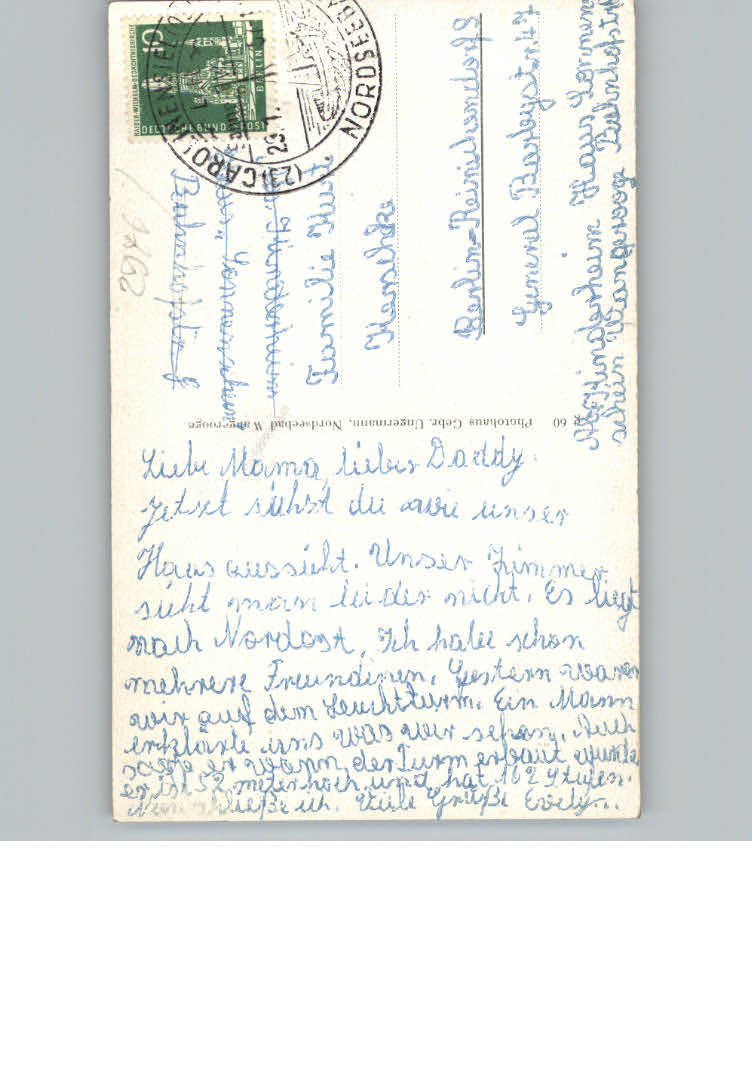 Liebe Mama, lieber Daddy.
Jetzt siehst du wie unser
Haus aussieht. Unser Zimmer
sieht man leider nicht. Es liegt
nach Nordost, Ich habe schon
mehrere Freundinen. Gestern waren
wir auf dem Leuchtturm. Ein Mann
erklärte uns was wir sehen. Auch
sagte er wann der Turm erbaut wurde
er ist 52 meter hoch und hat 162 Stufen.
Nun schließe ich. Viele Grüße Evelyn.
60
Photohaus Gebr. Ungermann, Nordseebad Wangerooge
10
KAISER-WILHELM-GEDÄCHTNISKIRCHE
DEUTSCHE BUNDESPOST
BERLIN
(23) CAROLINENSIEL
NORDSEEBAD
23.1.
Kinderheim
Sonnenschein
Bahnhofstr
Familie
Henschke
Berlin-Reinickendorf
General Barbystr. 47
Abs. Kinderheim Haus Sonnen
schein Wangerooge Bahnhofstr